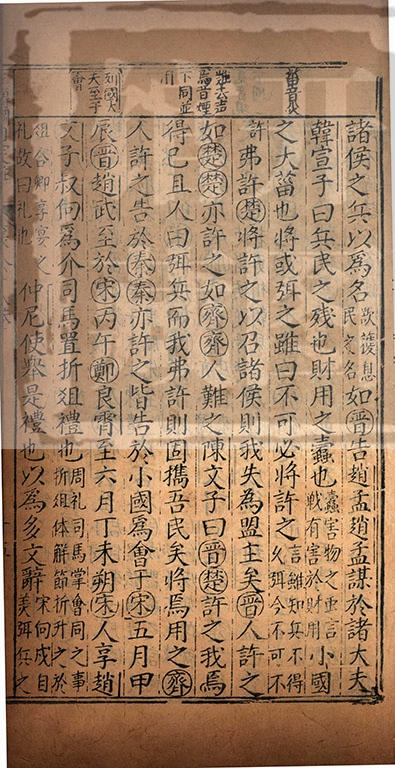 菑音災
諸侯之兵以爲名欲䕶息民之名如晉告趙孟趙孟謀於諸大夫
韓宣子曰兵民之殘也財用之蠹也蠹害物之虫言戰有害於財用小國
之大菑也將或弭之雖曰不可必將許之言雖知兵不得久弭今不可不
許弗許楚將許之以召諸侯則我失爲盟主矣晉人許之
難去声
焉音煙
下同並
如楚楚亦許之如齊齊人難之陳文子曰晉楚許之我焉
得已且人曰弭兵而我弗許則固攜吾民矣將焉用之齊
人許之告於秦秦亦許之皆告於小國爲會于宋五月甲
列國大
夫至于
會
辰晉趙武至於宋丙午鄭良霄至六月丁未朔宋人享趙
文子叔向爲介司馬置折俎禮也周礼司馬掌會同之事折俎体解節折升之於
俎合卿享宴之礼故曰礼也仲尼使舉是禮也以爲多文辭宋向戌自美弭兵之